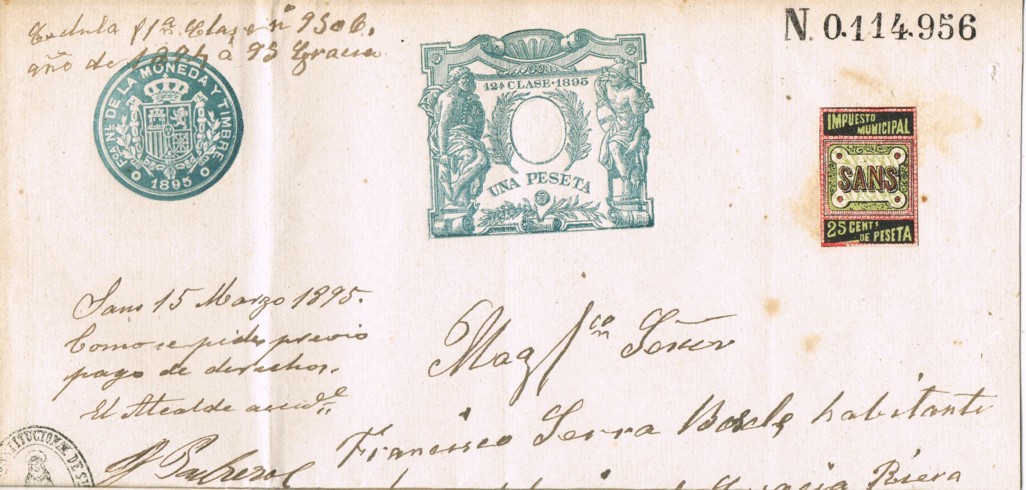 Cedula 11ª Clase nº 9306.
año de 1894 a 95 Gracia
N. 0.114.956
FCA. NL. DE LA MONEDA Y TIMBRE
1895
12ª CLASE·1895
UNA PESETA
IMPUESTO MUNICIPAL
SANS
25 CENTS DE PESETA
Sans 15 Marzo 1895.
Como se pide, previo
pago de derechos.
El Alcalde accidl
Magfco Señor
Francisco Serra habitante
Riera